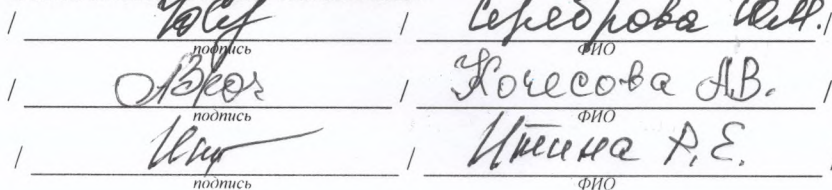 / / Сереброва Ю.М. /
подпись ФИО
/ / Кочесова А.В. /
подпись ФИО
/ / Итина Р.Е. /
подпись ФИО